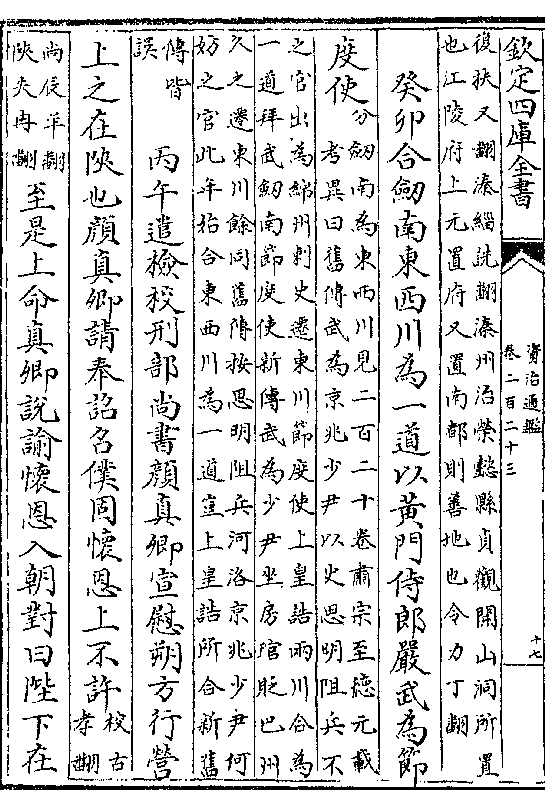 欽定四庫全書
資治通鑑
卷二百二十三
十七
復扶又翻溱緇詵翻溱州治榮懿縣貞觀開山洞所置
也江陵府上元置府又置南都則善地也令力丁翻
癸卯合劒南東西川為一道以黃門侍郎嚴武為節
度使
分劒南為東西川見二百二十卷肅宗至德元載
考異曰舊傳武為京兆少尹以史思明阻兵不
之官出為綿州刺史遷東川節度使上皇誥兩川合為
一道拜武劒南節度使新傳武為少尹坐房琯貶巴州
久之遷東川餘同舊傳按思明阻兵河洛京兆少尹何
妨之官此年始合東西川為一道豈上皇誥所合新舊
傳皆
誤
丙午遣檢校刑部尚書顏真卿宣慰朔方行營
上之在陝也顏真卿請奉詔召僕固懷恩上不許
校古
孝翻
尚辰羊翻
陝失冉翻
至是上命真卿說諭懷恩入朝對曰陛下在